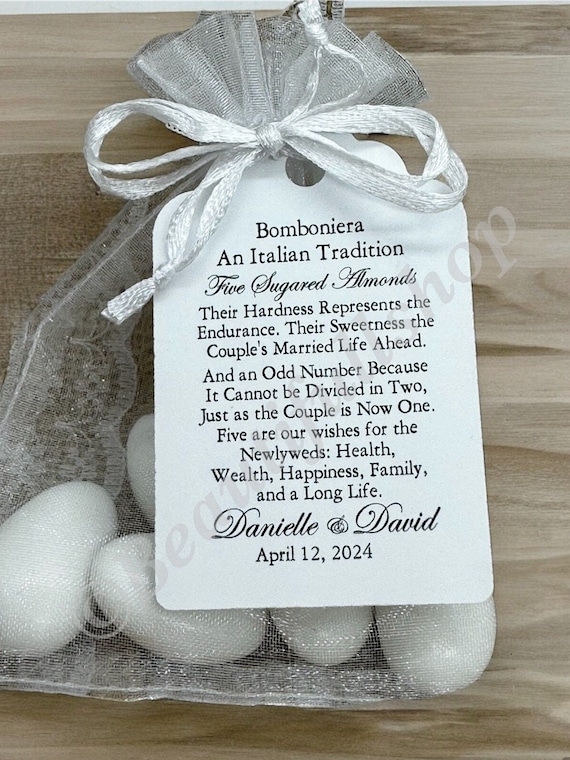 Bomboniera
An Italian Tradition
Five Sugared Almonds
Their Hardness Represents the
Endurance. Their Sweetness the
Couple's Married Life Ahead.
And an Odd Number Because
It Cannot be Divided in Two,
Just as the Couple is Now One.
Five are our wishes for the
Newlyweds: Health,
Wealth, Happiness, Family,
and a Long Life.
Danielle & David
April 12, 2024